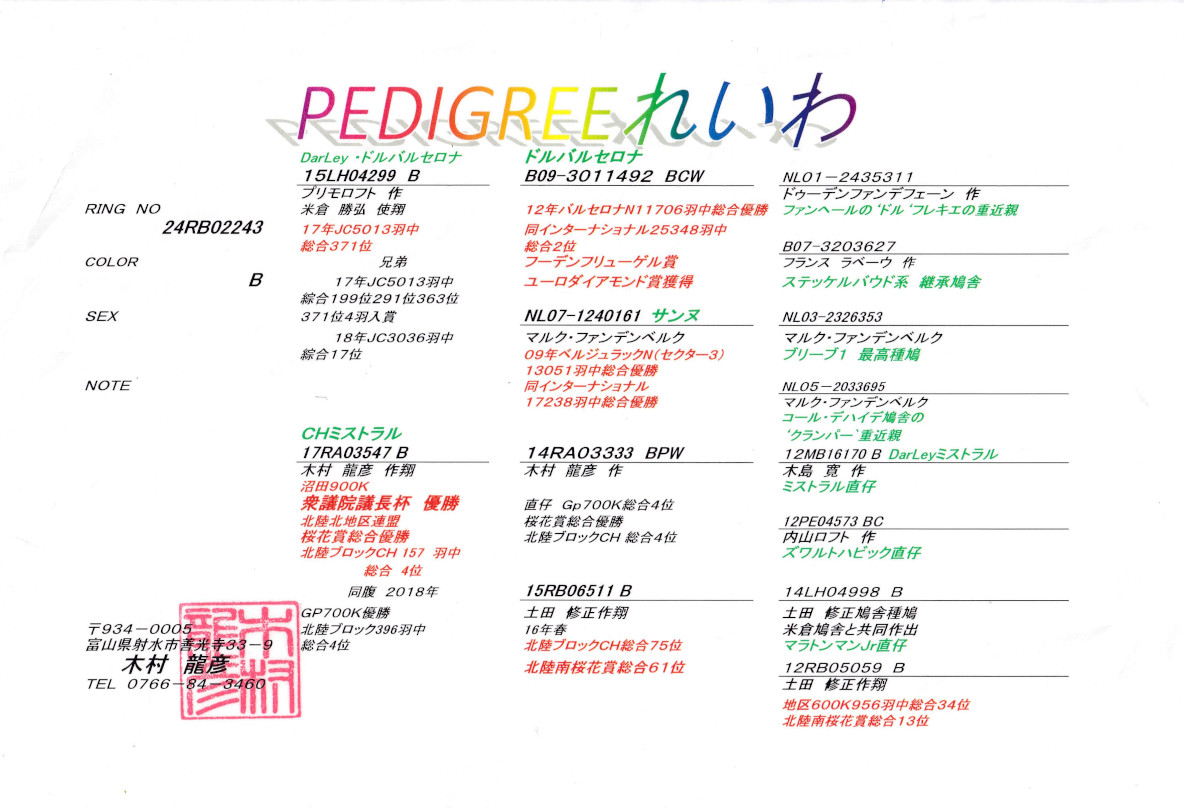 PEDIGREEれいわ
RING NO
24RB02243
COLOR
B
SEX
NOTE
〒934-0005
富山県射水市善光寺33-9
木村 龍彦
TEL 0766-84-3460
木村龍彦
DarLey ・ドルバルセロナ
15LH04299 B
プリモロフト 作
米倉 勝弘 使翔
17年JC5013羽中
総合371位
兄弟
17年JC5013羽中
綜合199位291位363位
371位4羽入賞
18年JC3036羽中
綜合17位
CHミストラル
17RA03547 B
木村 龍彦 作翔
沼田900K
衆議院議長杯 優勝
北陸北地区連盟
桜花賞総合優勝
北陸ブロックCH 157 羽中
総合 4位
同腹 2018年
GP700K優勝
北陸ブロック396羽中
総合4位
ドルバルセロナ
B09-3011492 BCW
12年バルセロナN11706羽中総合優勝
同インターナショナル25348羽中
総合2位
フーデンフリューゲル賞
ユーロダイアモンド賞獲得
NL07-1240161 サンヌ
マルク・ファンデンベルク
09年ベルジュラックN(セクター3)
13051羽中総合優勝
同インターナショナル
17238羽中総合優勝
14RA03333 BPW
木村 龍彦 作
直仔 Gp700K総合4位
桜花賞総合優勝
北陸ブロックCH 総合4位
15RB06511 B
土田 修正作翔
16年春
北陸ブロックCH総合75位
北陸南桜花賞総合61位
NL01-2435311
ドゥーデンファンデフェーン 作
ファンヘールの‘ドル‘フレキエの重近親
B07-3203627
フランス ラベーウ 作
ステッケルバウド系 継承鳩舎
NL03-2326353
マルク・ファンデンベルク
ブリーブ1 最高種鳩
NL05-2033695
マルク・ファンデンベルク
コール・デハイデ鳩舎の
‘クランパー‘重近親
12MB16170 B DarLeyミストラル
木島 寛 作
ミストラル直仔
12PE04573 BC
内山ロフト 作
ズワルトハビック直仔
14LH04998 B
土田 修正鳩舎種鳩
米倉鳩舎と共同作出
マラトンマンJr直仔
12RB05059 B
土田 修正作翔
地区600K956羽中総合34位
北陸南桜花賞総合13位